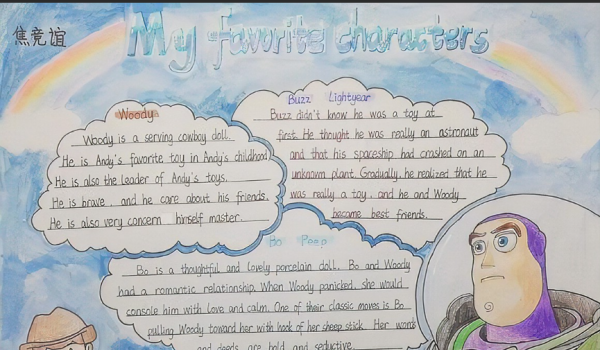 My favorite characters
焦竞谊
Woody
Woody is a serving cowboy doll.
He is Andy's favorite toy in Andy's childhood
He is also the leader of Andy's toys.
He is brave, and he care about his friends.
He is also very concern himself master.
Buzz Lightyear
Buzz didn't know he was a toy at
first. He thought he was really an astronaut
and that his spaceship had crashed on an
unknown plant. Gradually, he realized that he
was really a toy, and he and Woody
become best friends.
Bo Peep
Bo is a thoughtful and lovely porcelain doll. Bo and Woody
had a romantic relationship. When Woody panicked, she would
console him with love and calm. One of their classic moves is Bo
pulling Woody toward her with hook of her sheep stick. Her words
and deeds are bold and seductive.